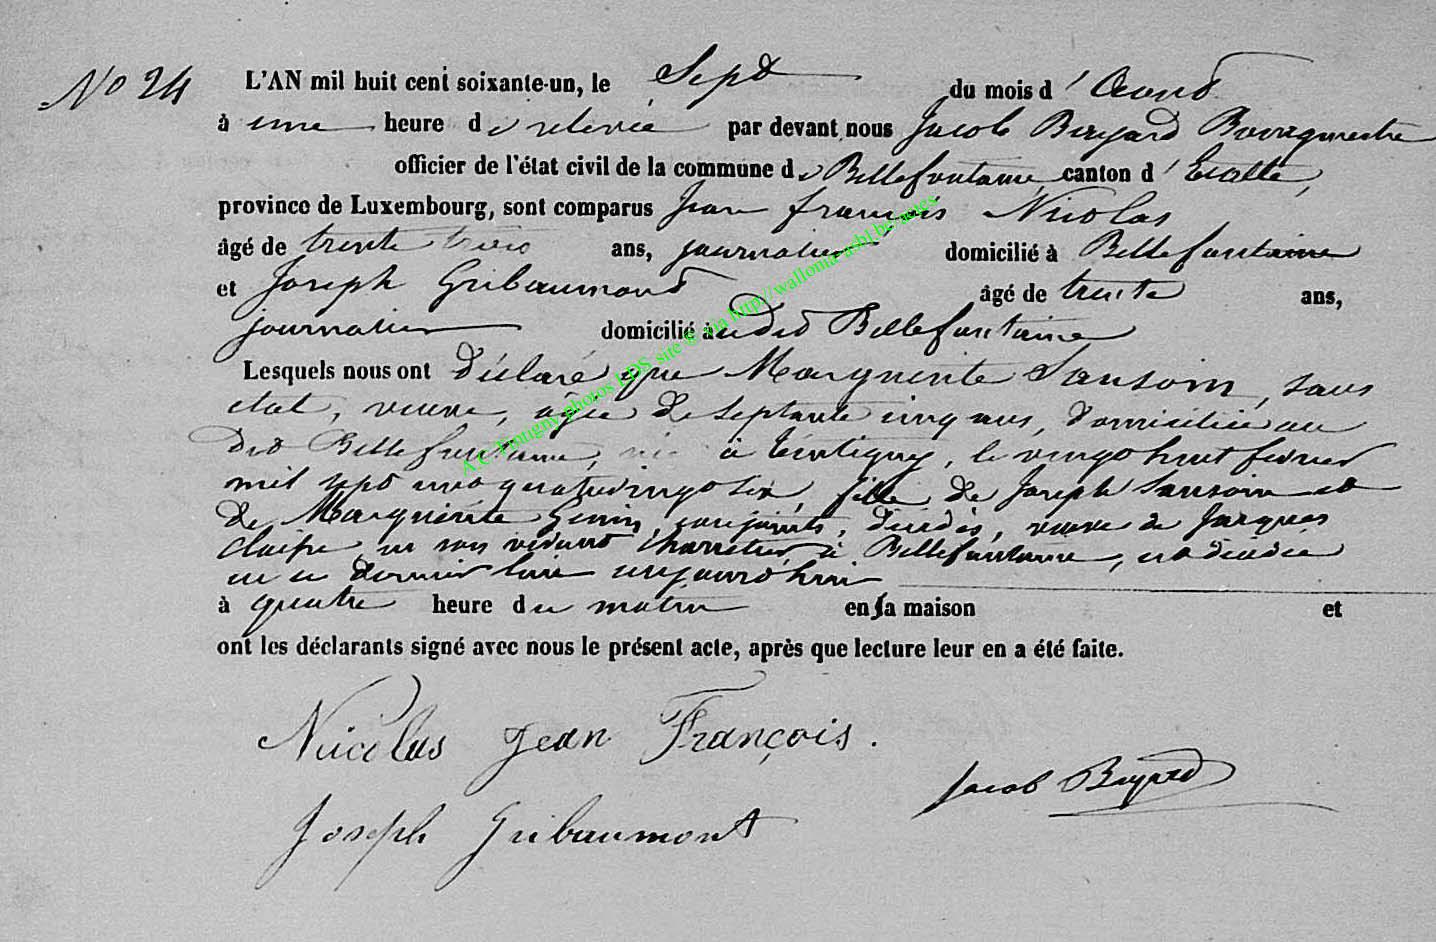 No 24
L'AN mil huit cent soixante-un, le Sept du mois d'Aout
à une heure de relevée par devant nous Jacob Bayard Bourgmestre
officier de l'état civil de la commune de Bellefontaine canton d'Etalle,
province de Luxembourg, sont comparus Jean françois Nicolas
âgé de trente trois ans, journalier domicilié à Bellefontaine
et Joseph Gribaumont âgé de trente ans,
journalier domicilié à udit Bellefontaine
Lesquels nous ont déclaré que Marguerite Sansoin, sans
état, veuve, agée de septante cinq ans, domiciliée au
dit Bellefontaine, née à Tintigny, le vingt huit février
mil sept cent quatrevingt six, fille de Joseph Sansoin et
de Marguerite Genin, conjoints, décédés, veuve de Jacques
Claife en son vivant charretier, à Bellefontaine, est décédée
en ce dernier lieu aujourd'hui
à quatre heure du matin en sa maison et
ont les déclarants signé avec nous le présent acte, après que lecture leur en a été faite.
Nicolas Jean François.
Jacob Bayard
Joseph Gribaumont
A.C. Tintigny photos LDS site @ via http://walloma-asbl.be/actes